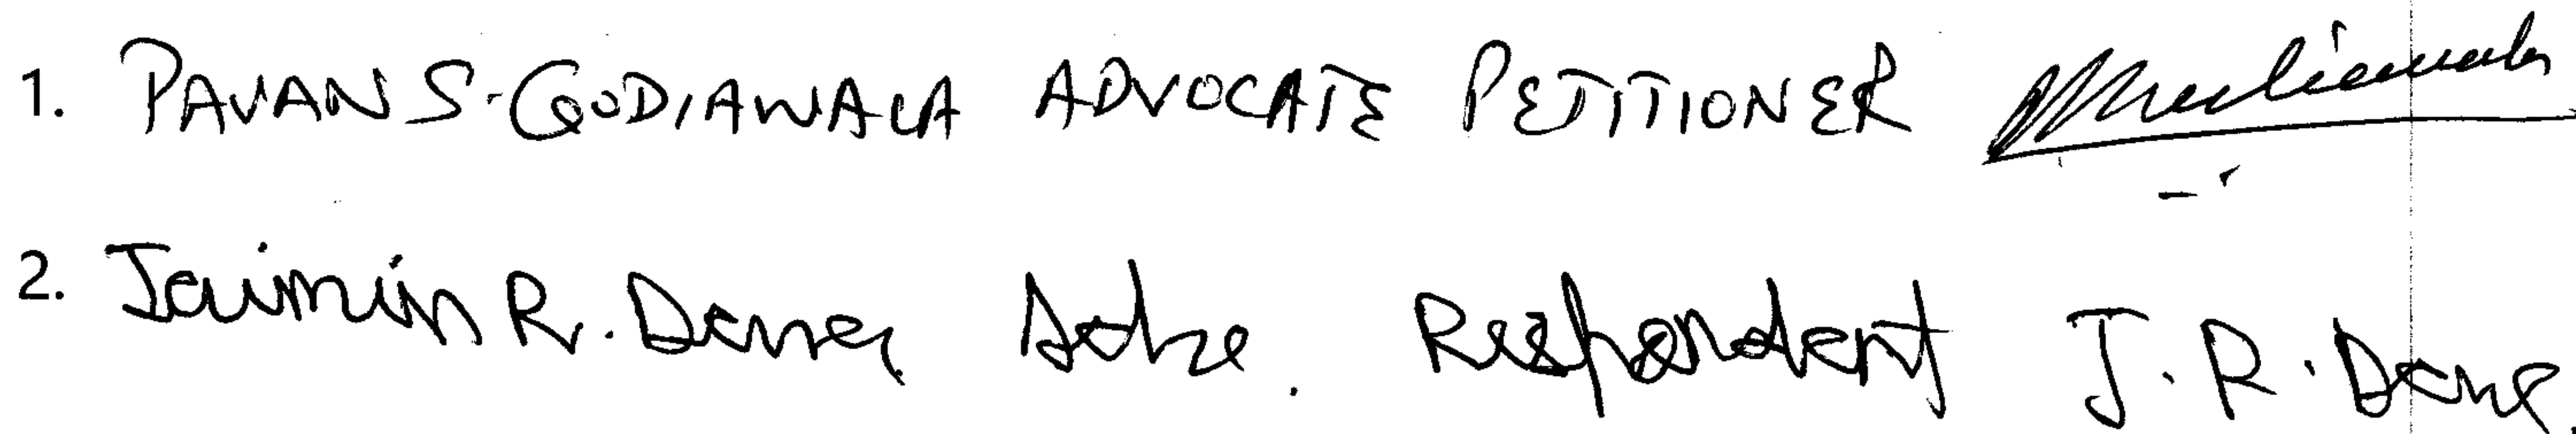 1. PAVAN S. GODIAWALA ADVOCATE PETITIONER
2. Jaimin R. Dave Adv. Respondent J. R. Dave